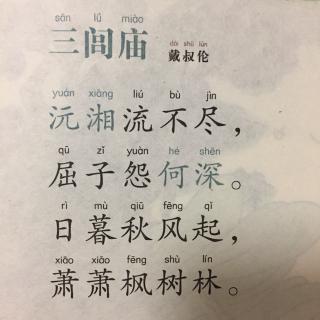 sān lǘ miào
三闾庙
dài shū lún
戴叔伦
yuán xiāng liú bù jìn
沅湘流不尽，
qū zǐ yuàn hé shēn
屈子怨何深。
rì mù qiū fēng qǐ
日暮秋风起，
xiāo xiāo fēng shù lín
萧萧枫树林。